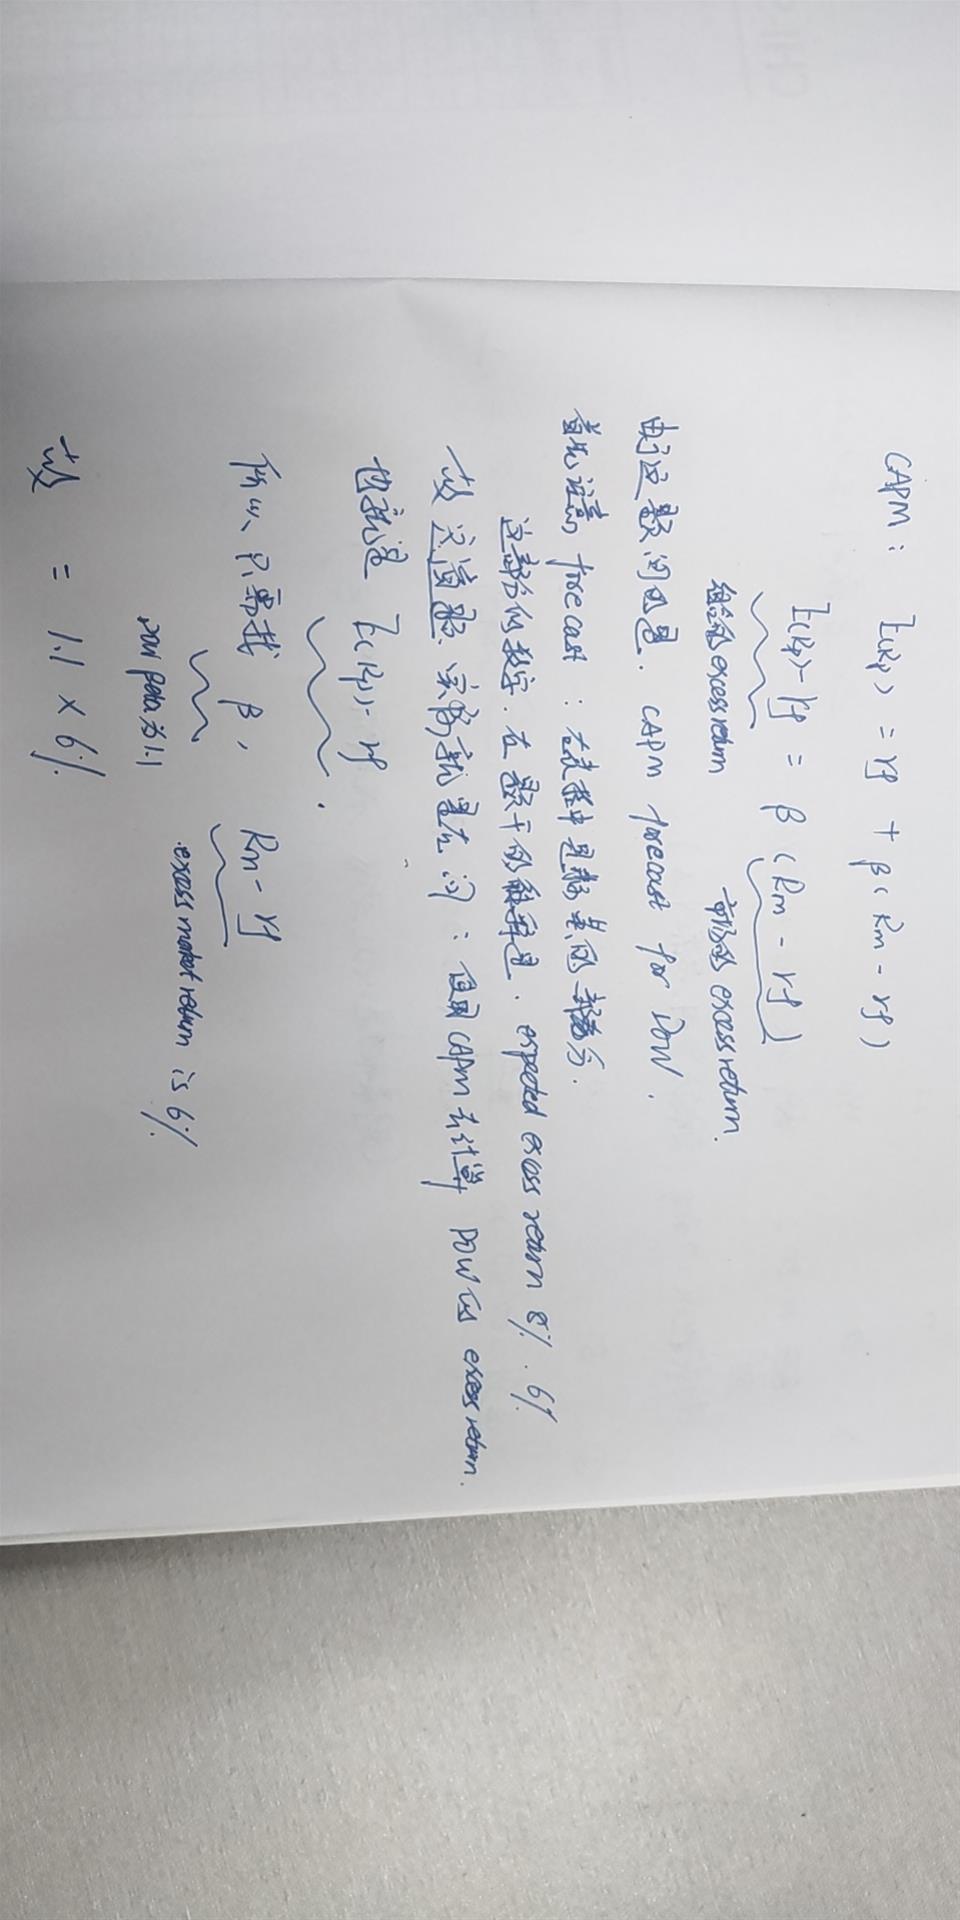 CAPM： E(Rp) = rf + β(Rm - rf)
E(Rp) - rf = β (Rm - rf)
组合的excess return 市场的 excess return.
由于这题问的是. CAPM forecast for DOW.
首先注意, forecast : 在表格中是 的 部分.
这部分的数字. 在题干的解释是. expected excess return 8%. 6%
故 这道题. 实际就是在 问： 使用CAPM去计算 DOW的 excess return.
也就是 E(Rp) - rf .
所以、只需找 β, Rm - rf
raw beta为1.1 excess market return is 6%
故 = 1.1 × 6%